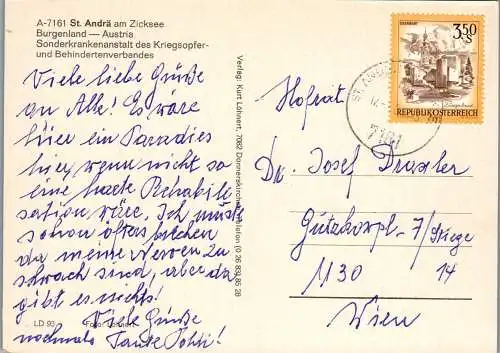 A-7161 St. Andrä am Zicksee
Burgenland — Austria
Sonderkrankenanstalt des Kriegsopfer-
und Behindertenverbandes
Viele liebe Grüße
an Alle! Es wäre
hier ein Paradies
hier wenn nicht so
eine harte Rehabili
sation wäre. Ich mußte
schon öfters brechen
da meine Nerven zu
schwach sind, aber da
gibt es nichts!
Viele Grüße
nochmals Tante Pohli!
LD 93 Foto: Löhnert
Verlag: Kurt Löhnert, 7082 Donnerskirchen, Telefon (0 26 83) 85 28
3.50
S
REPUBLIK ÖSTERREICH
7161
Hofrat
Dr. Josef Draxler
Gützkowpl - 7/Stiege
1130 14
Wien